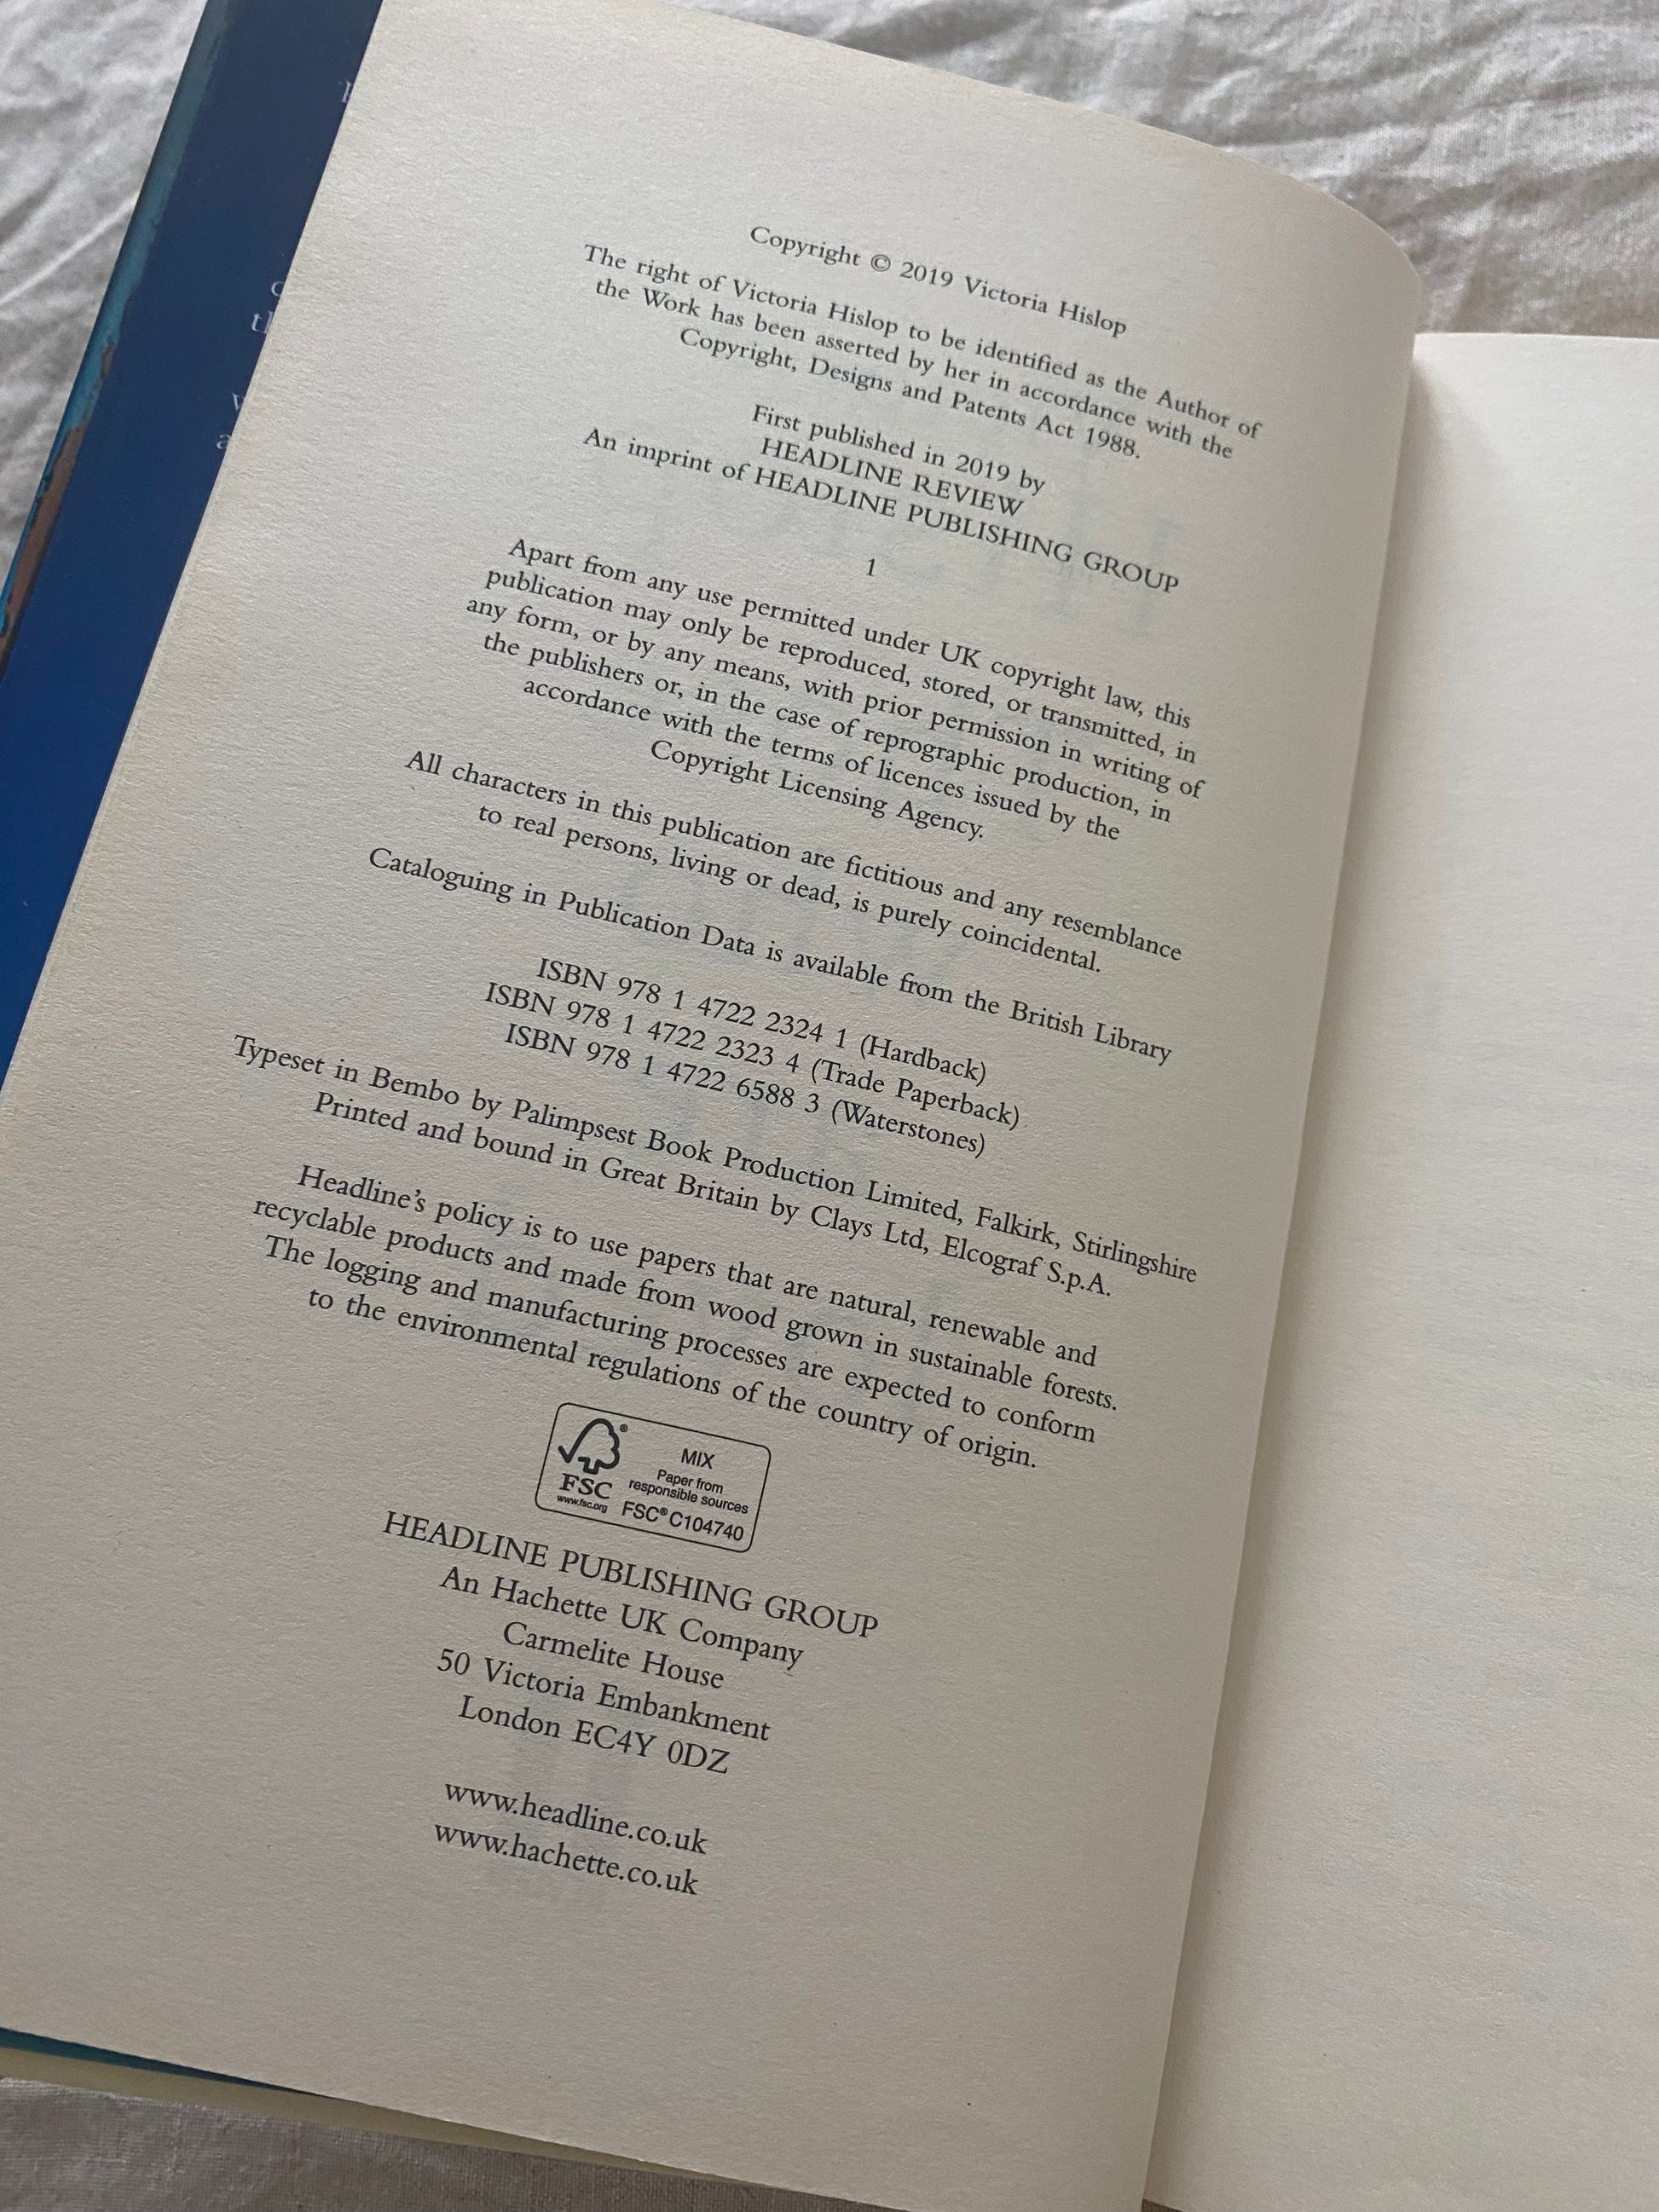 Copyright © 2019 Victoria Hislop
The right of Victoria Hislop to be identified as the Author of
the Work has been asserted by her in accordance with the
Copyright, Designs and Patents Act 1988.
First published in 2019 by
HEADLINE REVIEW
An imprint of HEADLINE PUBLISHING GROUP
1
Apart from any use permitted under UK copyright law, this
publication may only be reproduced, stored, or transmitted, in
any form, or by any means, with prior permission in writing of
the publishers or, in the case of reprographic production, in
accordance with the terms of licences issued by the
Copyright Licensing Agency.
All characters in this publication are fictitious and any resemblance
to real persons, living or dead, is purely coincidental.
Cataloguing in Publication Data is available from the British Library
ISBN 978 1 4722 2324 1 (Hardback)
ISBN 978 1 4722 2323 4 (Trade Paperback)
ISBN 978 1 4722 6588 3 (Waterstones)
Typeset in Bembo by Palimpsest Book Production Limited, Falkirk, Stirlingshire
Printed and bound in Great Britain by Clays Ltd, Elcograf S.p.A.
Headline's policy is to use papers that are natural, renewable and
recyclable products and made from wood grown in sustainable forests.
The logging and manufacturing processes are expected to conform
to the environmental regulations of the country of origin.
FSC
www.fsc.org
MIX
Paper from
responsible sources
FSC® C104740
HEADLINE PUBLISHING GROUP
An Hachette UK Company
Carmelite House
50 Victoria Embankment
London EC4Y 0DZ
www.headline.co.uk
www.hachette.co.uk